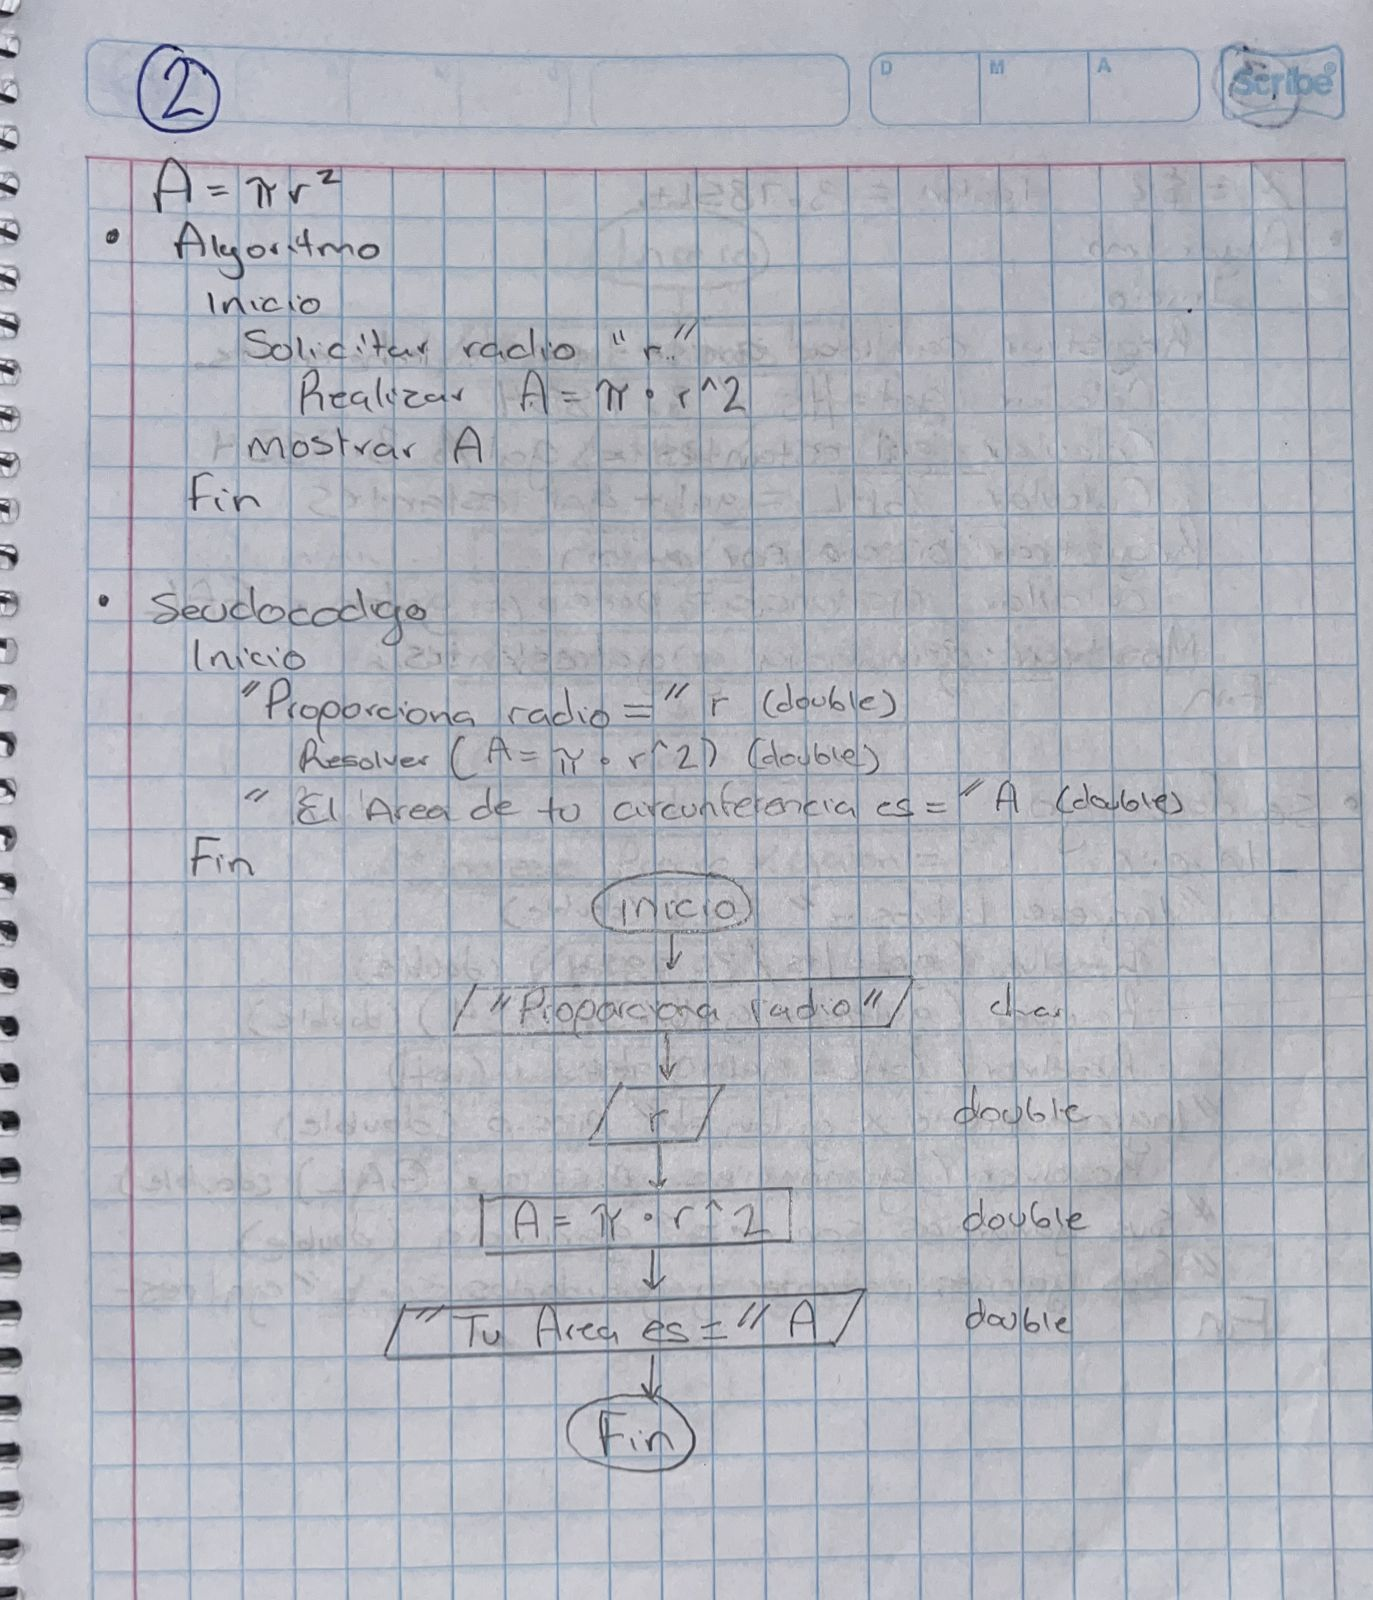 2
D M A
Scribe®
A = πr²
• Algoritmo
Inicio
Solicitar radio "r"
Realizar A = π • r^2
Mostrar A
Fin
• Seudocodigo
Inicio
"Proporciona radio =" r (double)
Resolver (A = π • r^2) (double)
" El Area de tu circunferencia es = " A (double)
Fin
inicio
"Proporciona radio" char
r double
A = π • r^2 double
"Tu Area es = " A double
Fin